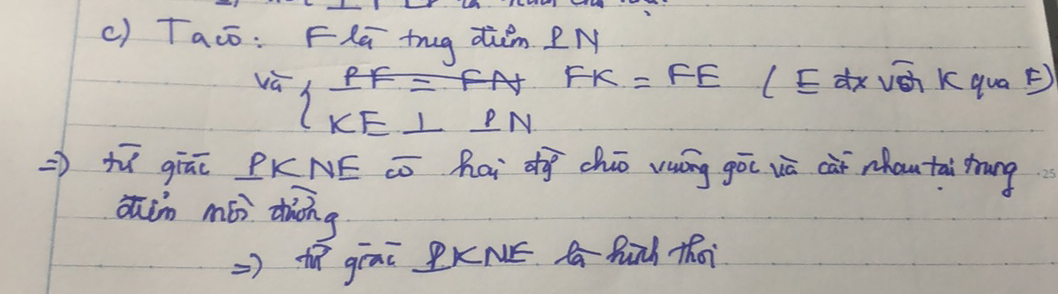 c) Ta có: F là trug điểm PN
và { P̶F̶ ̶=̶ ̶F̶N̶ FK = FE ( E đx với K qua F)
KE ⊥ PN
=> tứ giác PKNE có hai đg chéo vuông góc và cắt nhau tại trung
điểm mỗi đường
=> tứ giác PKNE là hình thoi